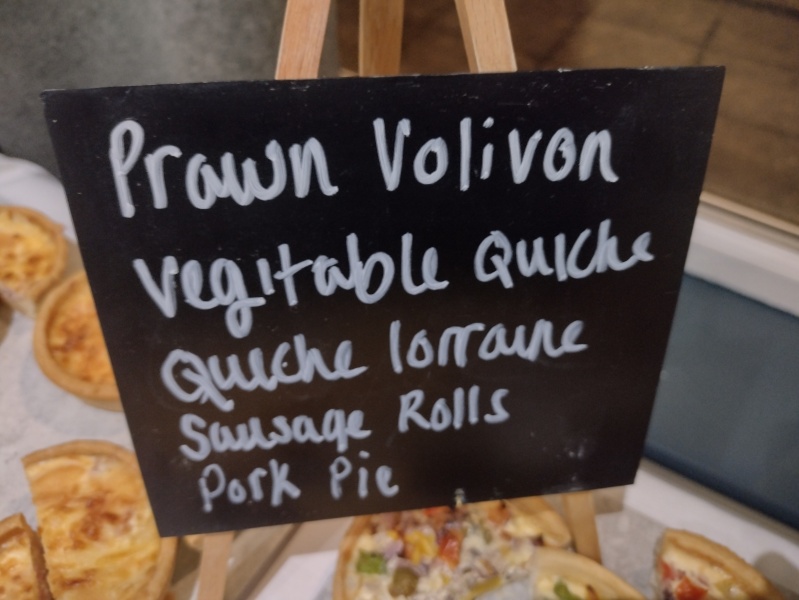 Prawn Volivon
Vegitable Quiche
Quiche lorraine
Sausage Rolls
Pork Pie